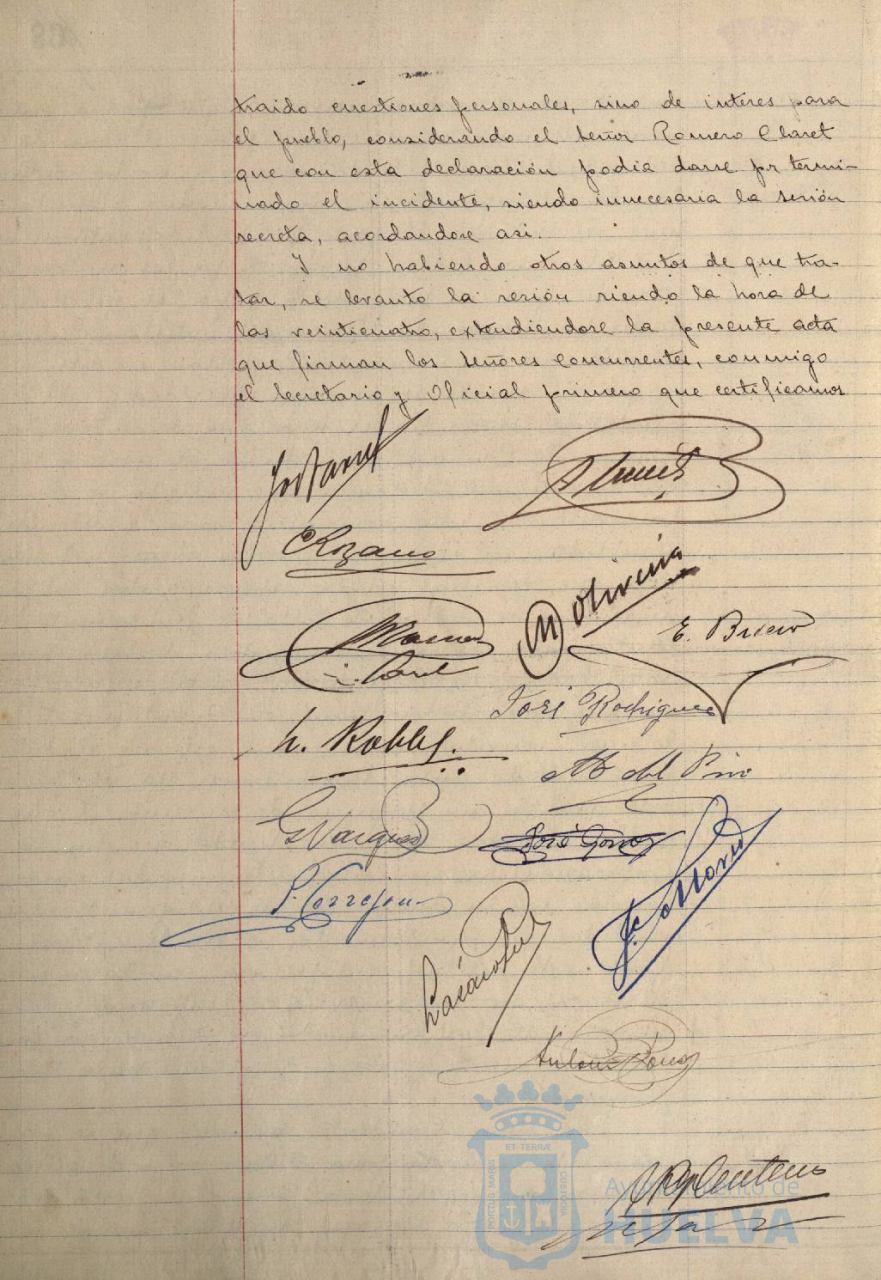 traido cuestiones personales, sino de interes para
el pueblo, considerando el Señor Romero Claret
que con esta declaración podia darse por termi-
nado el incidente, siendo innecesaria la sesión
secreta, acordandose asi.
Y no habiendo otros asuntos de que tra-
tar, se levanto la sesión siendo la hora de
las veinticuatro, extendiendose la presente acta
que firman los señores concurrentes, conmigo
el Secretario y Oficial primero que certificamos
C Lozano
M Oliveira
E. Brieva
José Rodriguez
L. Robles.
M. del Pino
G Vazquez
José Gomez
P. Correjon
Antonio
Centeno
ET TERRÆ
PORTUS MARIS
CUSTODIA
Ayuntamiento de
HUELVA